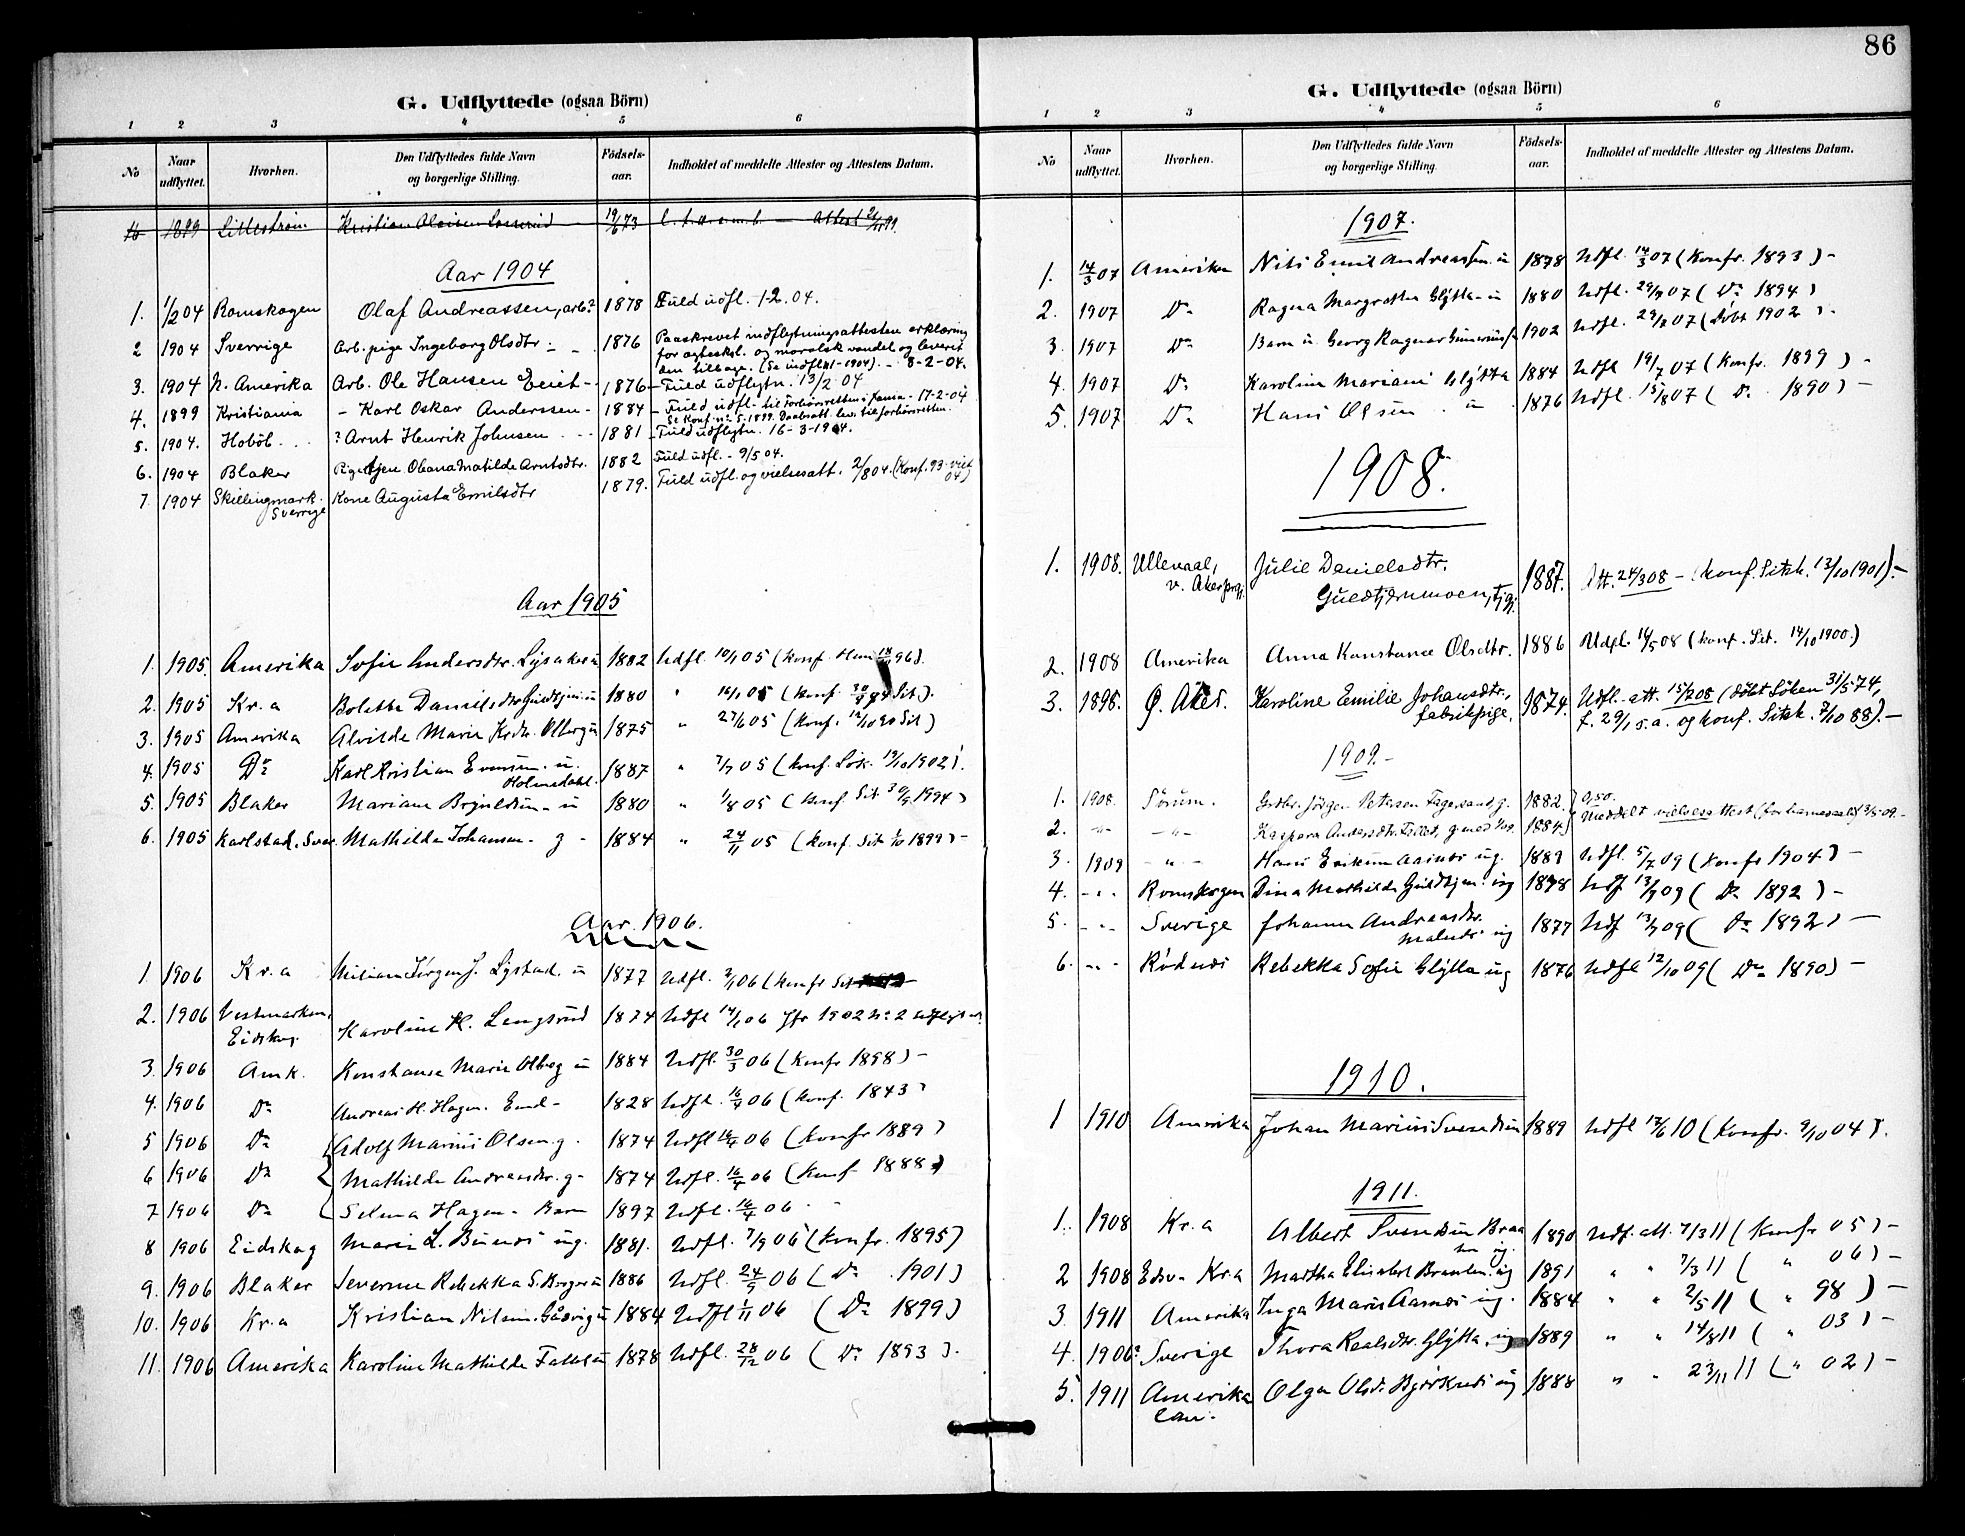 86
G. Udflyttede (ogsaa Börn)
1 2 3 4 5 6
No Naar udflyttet. Hvorhen. Den Udflyttedes fulde Navn og borgerlige Stilling. Födsels-aar. Indholdet af meddelte Attester og Attestens Datum.
1899 Lillestrøm Kristian 19/6 73 Attest
Aar 1904
1. 1/2 04 Romskogen Olaf Andreassen, arb. 1878 Fuld udfl. 1-2.04.
2 1904 Sverrige Arb. pige Ingeborg Olsdtr. 1876 Paaskrevet indflytningsattesten erklæring
for ægteskl. og moralsk vandel og leveret
den tilbage. (Se indfl. 1-1904). - 8-2-04.
3. 1904 N. Amerika Arb. Ole Hansen Eeiet - 1876 - Fuld udflytn. 13/2 04
4. 1899 Kristiania - Karl Oskar Anderssen - 1884 - Fuld udfl. til Forhörsretten i 17-2-04
Se Konf. nr. 5. 1899. Daabsatt. lev. til forhörsretten.
5. 1904. Hobøl. ? Arnt Henrik Johnsen 1881 - Fuld udflytn. 16-3-1904.
6. 1904 Blaker Pige Oleana Matilde Arntsdtr. 1882 Fuld udfl. - 9/5 04.
7. 1904 Skillingmark. Sverrige Kone Augusta Emilsdtr 1879. Fuld udfl. og vielsesatt. 2/8 04. (Konf. 93. viet 04)
Aar 1905
1. 1905. Amerika Sofie Andersdtr. Lysaker u 1882 Udfl. 10/1 05 (Konf. 96).
2. 1905 Kr.a Bolette Daniels dtr 1880 " 05 (Konf. Sit).
3. 1905 Amerika Alvilde Marie Olberg u 1875 " 27/6 05 (Konf. 12/10 90 Sit)
4. 1905 Do Karl Kristian Evensen. u. Holmedahl. 1887 " 7/7 05 (Konf. Sit. 19/10 1902).
5. 1905 Blaker Mariane Brynildsen - u 1880 " 1/8 05 (Konf Sit 30/9 1994)
6. 1905 Karlstad, Sver. Mathilde Johansen - g - 1884 " 24/11 05 (Konf. Sit 1/10 1899) -
Aar 1906.
1 1906 Kr.a Jørgen J. Lystad. u 1877 Udfl. 2/1 06 (Konfr Sit
2. 1906 Vestmarken, Eidskog Karoline K. Langsrud 1874 Udfl 14/1 06 Jfr 1902 No 2
3. 1906 Amk. Konstance Marie Olberg u 1884 Udfl. 30/3 06 (Konfr 1898) -
4. 1906 Do Andreas H. Hagen. Enk - 1828 Udfl. 16/4 06 (Konf. 1843)
5 1906 Do Adolf Marius Olsen g. 1874 Udfl 16/4 06 (Konfr 1889)
6 1906 Do Mathilde Andreasdtr. g - 1874 Udfl. 16/4 06 (Konf 1888)
7 1906 Do Selma Hagen - Barn 1897 Udfl. 16/4 06
8 1906 Eidskog Marie L. Buenes ug. 1881. Udfl. 7/9 06 (Konfr. 1895)
9. 1906 Blaker Severine Rebekka S. 1886 Udfl. 24/9 06 (Do . 1901)
10. 1906 Kr.a Kristian Nilsen. u 1884 Udfl 1/11 06 (Do 1899)
11. 1906 Amerika Karoline Mathilde u 1878 Udfl. 28/12 06 (Do 1893).
G. Udflyttede (ogsaa Börn)
1 2 3 4 5 6
No Naar udflyttet. Hvorhen. Den Udflyttedes fulde Navn og borgerlige Stilling. Födsels-aar. Indholdet af meddelte Attester og Attestens Datum.
1907.
1. 14/3 07 Amerika Nils Emil Andreassen. u 1878 Udfl. 14/3 07 (Konfr. 1893) -
2. 1907 Do Ragna Margrethe Glytta - u 1880 Udfl. 29/7 07 (Do 1894)
3. 1907 Do Barn u. Georg Ragnar 1902 Udfl. 29/7 07 (Döbt 1902) -
4. 1907 Do Karoline Mariane Glytta 1884 Udfl 19/7 07 (Konfr. 1899) -
5. 1907 Do Hans Olsen. u 1876 Udfl. 15/8 07 (Do 1890) -
1908.
1. 1908. Ullevaal, v. Aker Julie Danielsdtr. 1887. Att. 24/3 08 - (Konf. Sitsk. 13/10 1901). -
2. 1908 Amerika Anna Konstance Olsdtr. 1886 Udfl. 14/5 08 (konf. Sit. 14/10 1900.)
3. 1898. Ø. Aker. Karoline Emilie Johansdtr., fabrikpige. 1874. Udfl. att. 15/12 08 (döbt Söken 31/5 74,
f. 29/1 s.a. og konf. Sitsk. 7/10 88). -
1909. -
1. 1908. Sörum. Grdbr. Jörgen Petersen Fagersand g. 1882. 0,50.
2. -"- -"- Kaspara Andersdtr. g. med No 1884. Meddelt vielsesattest 09. -
3. 1909 - " - Hans Eriksen Aarnes ug. 1889 Udfl. 5/7 09 (Konfr 1904) -
4. - " - Romskogen Dina Mathilde ug 1878 Udf 13/7 09 (Do 1892) -
5. - " - Sverige Johanne Andreasdtr. ug 1877 Udf 13/7 09 (Do 1892) -
6. - " - Rödenes Rebekka Sofie Glytta ug 1876 Udfl 12/10 09 (Do 1890) -
1910.
1 1910 Amerika Johan Marius Svendsen 1889 Udfl 17/6 10 (Konfr. 9/10 04).
1911.
1. 1908 Kr.a Albert Svendsen ug. 1890 Udf. att. 7/3 11 (Konfr 05) -
2 1908 Edsv - Kr.a Martha Elisabet ug 1891 " " 7/3 11 ( " 06) -
3. 1911 Amerika Inga Marie Aarnes ug. 1884 " " 2/5 11 ( " 98) -
4. 1906? Sverige Thora Glytta. ug 1889 " " 14/8 11 ( " 03) -
5. 1911 Amerika can. Olga Olsd. ug 1888 " " 23/11 11 ( " 02) -